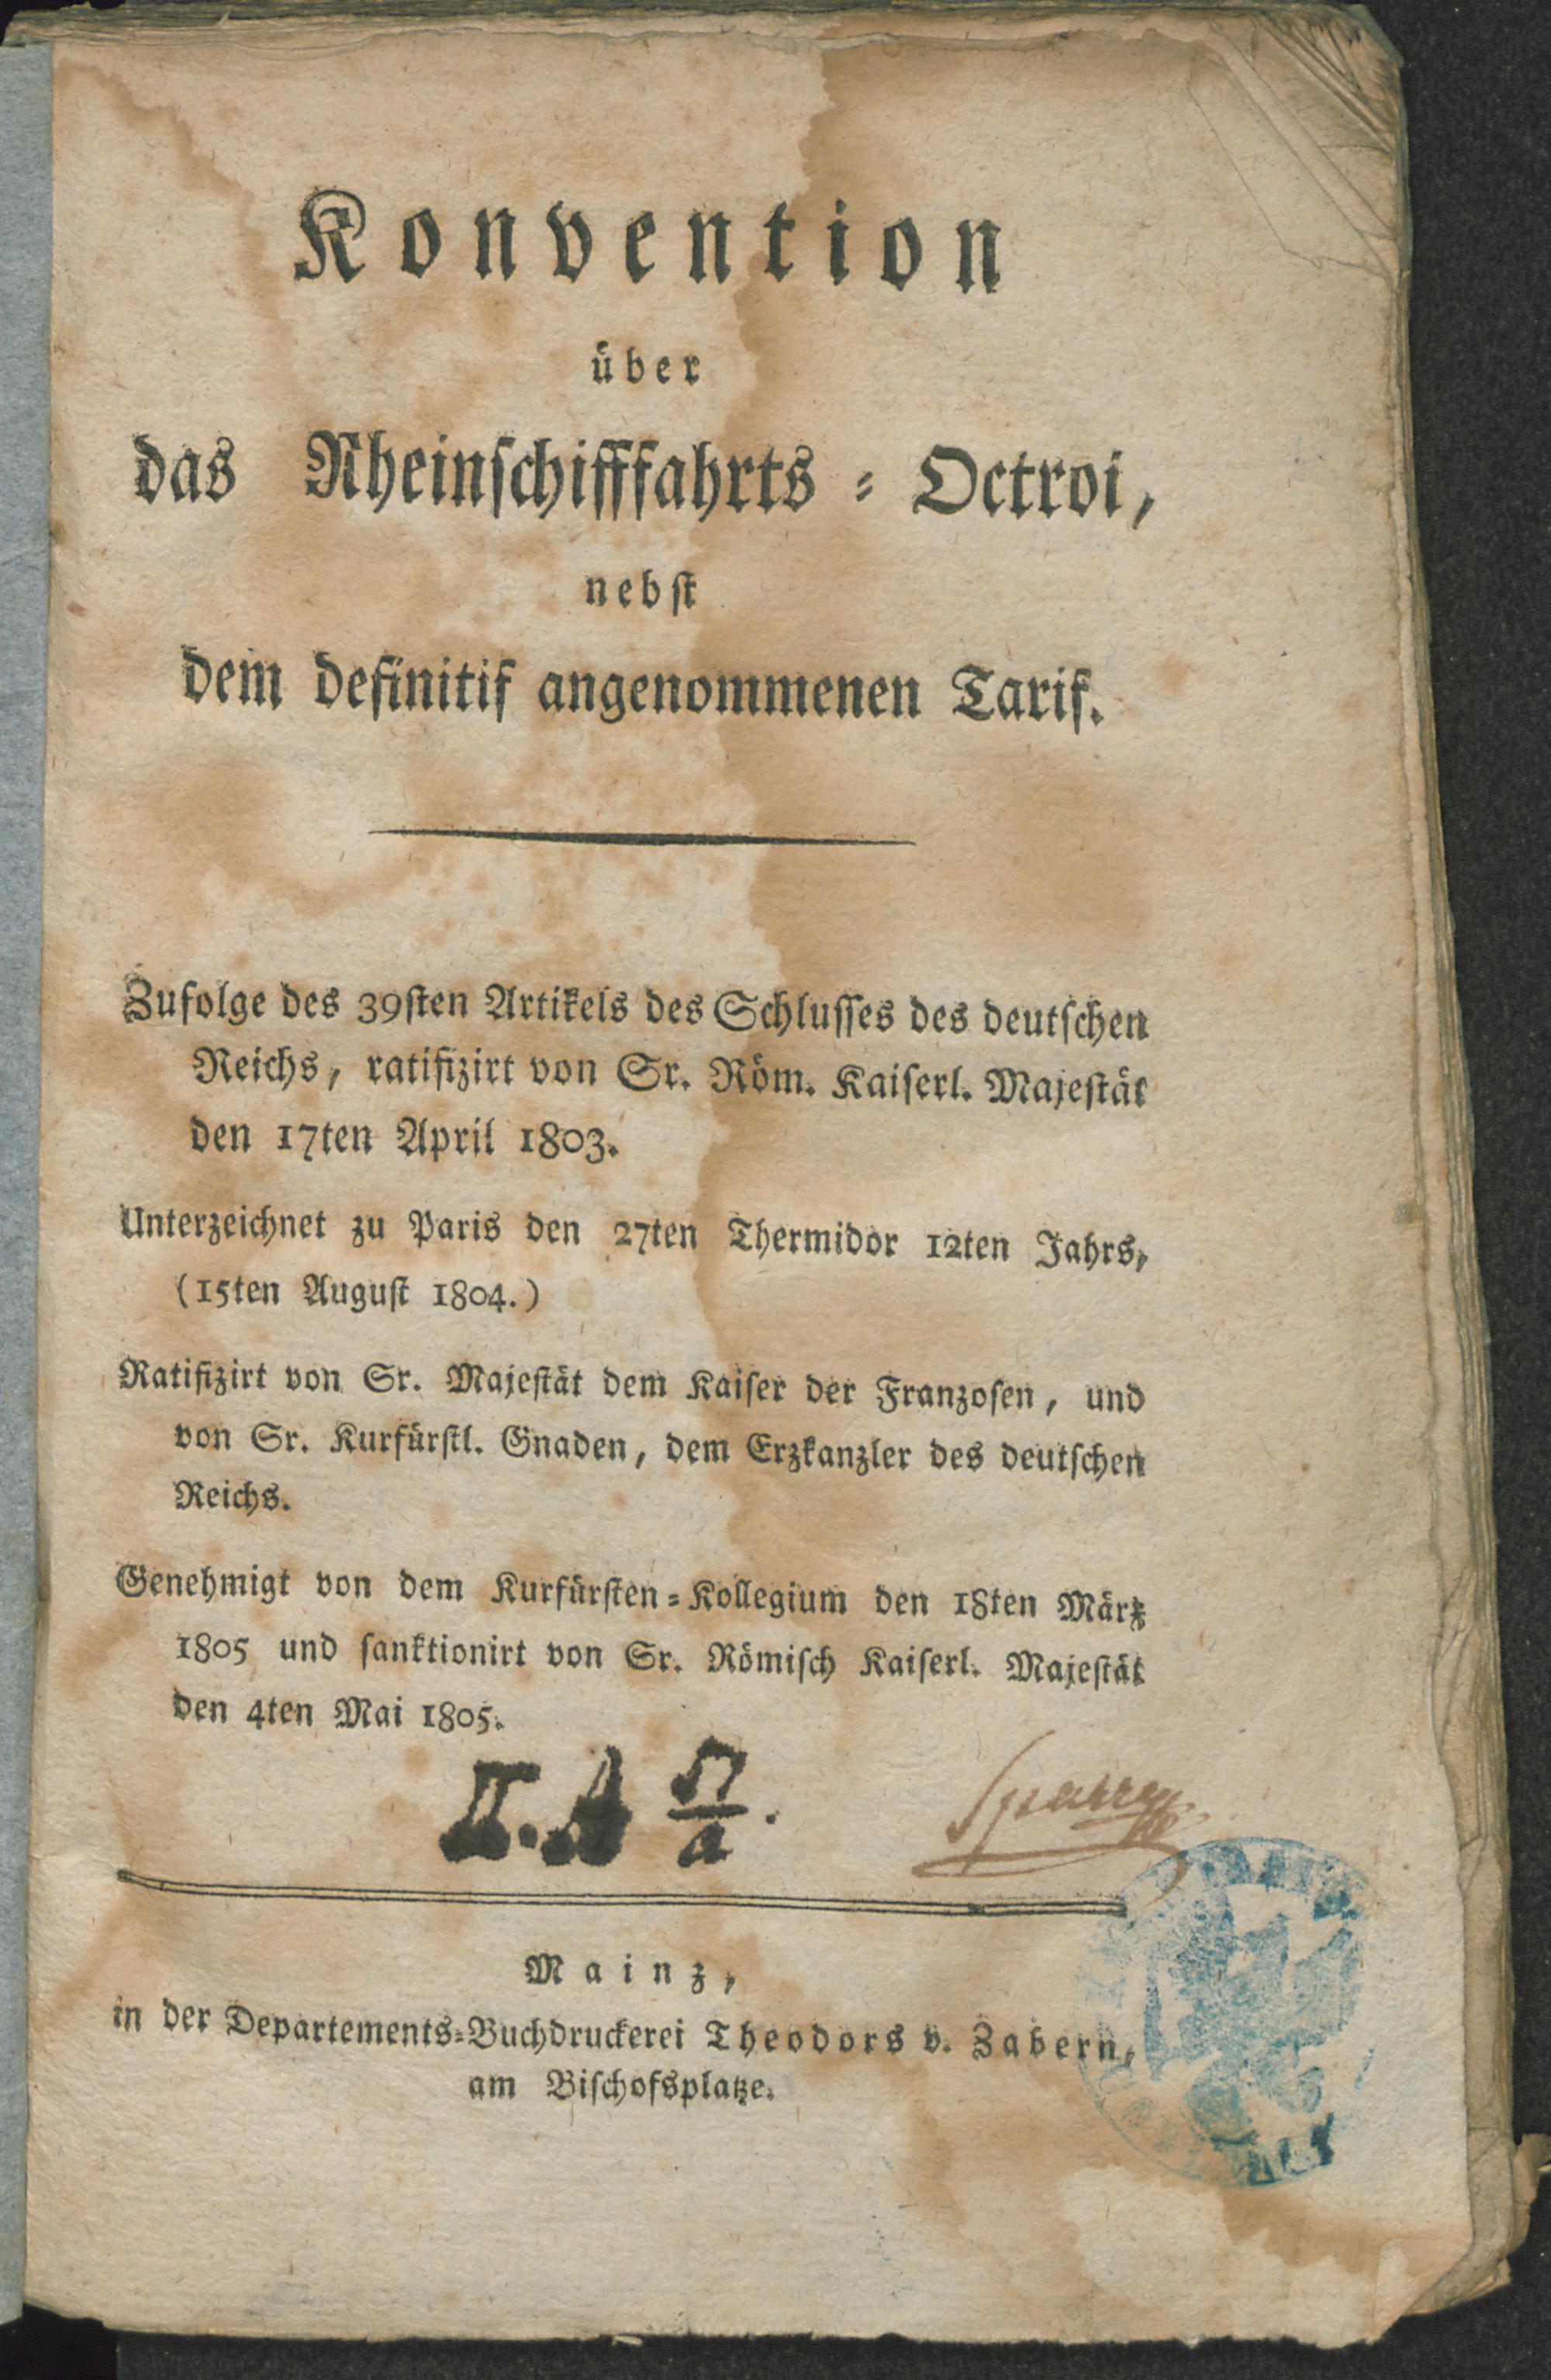 Konvention
über
das Rheinschifffahrts=Octroi,
nebst
dem definitif angenommenen Tarif.
Zufolge des 39sten Artikels des Schlusses des deutschen
Reichs, ratifizirt von Sr. Röm. Kaiserl. Majestät
den 17ten April 1803.
Unterzeichnet zu Paris den 27ten Thermidor 12ten Jahrs,
(15ten August 1804.)
Ratifizirt von Sr. Majestät dem Kaiser der Franzosen, und
von Sr. Kurfürstl. Gnaden, dem Erzkanzler des deutschen
Reichs.
Genehmigt von dem Kurfürsten=Kollegium den 18ten März
1805 und sanktionirt von Sr. Römisch Kaiserl. Majestät
den 4ten Mai 1805.
II. A
a
Mainz,
in der Departements=Buchdruckerei Theodors v. Zabern,
am Bischofsplatze.